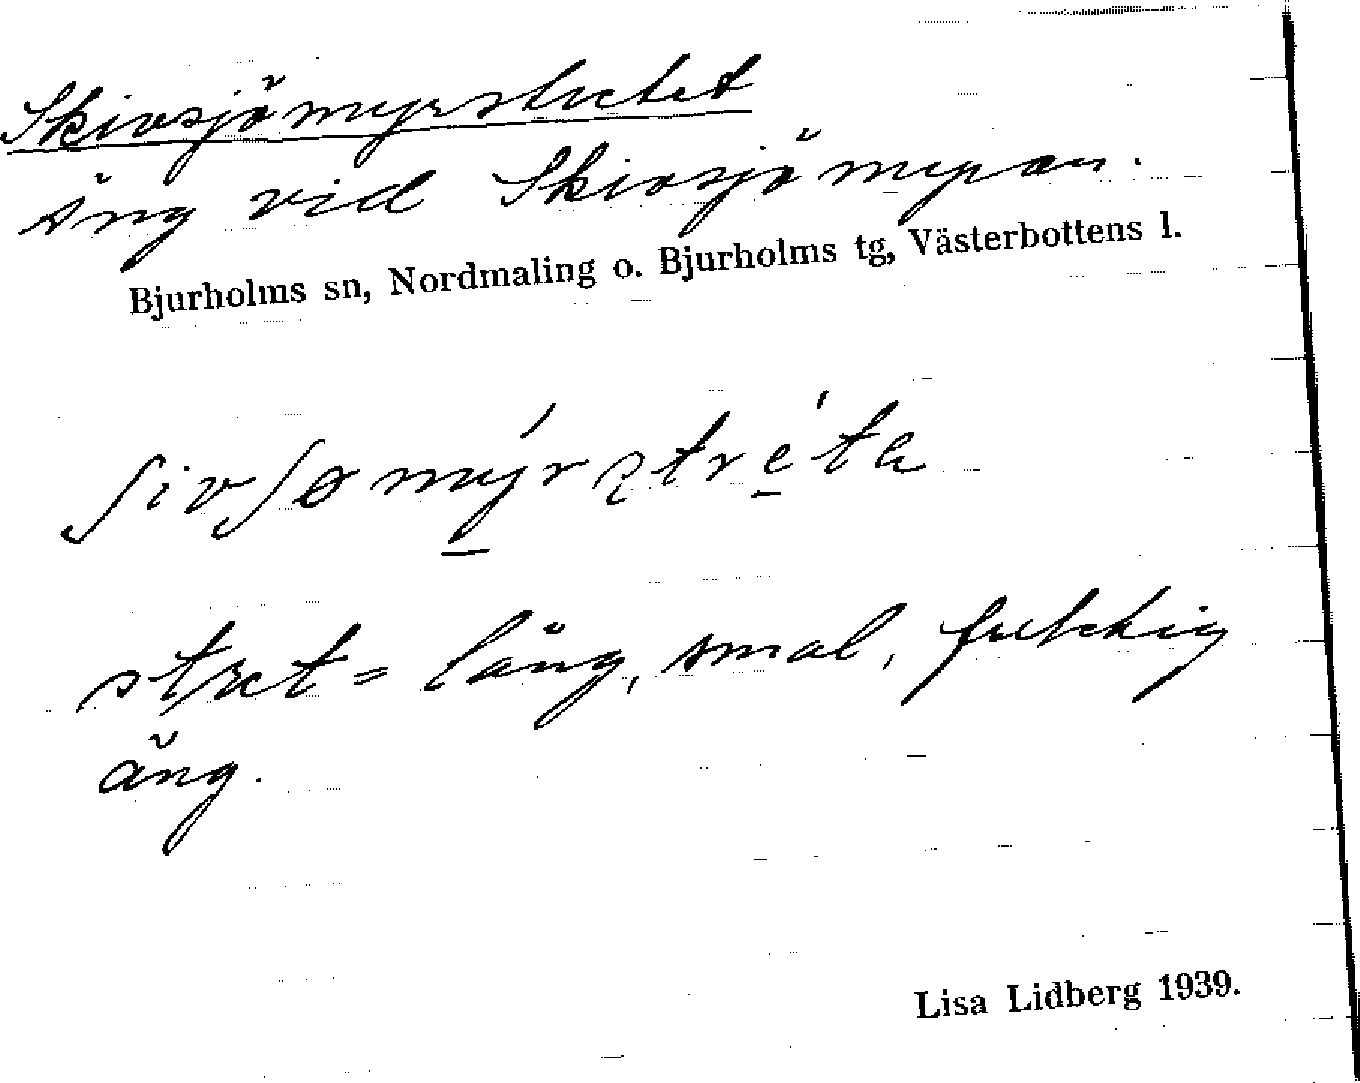 Skivsjömyrstretet
Äng vid Skivsjömyran.
Bjurholms sn, Nordmaling o. Bjurholms tg, Västerbottens l.
ʃivʃømýrstréta
stret = lång, smal, fuktig
äng.
Lisa Lidberg 1939.